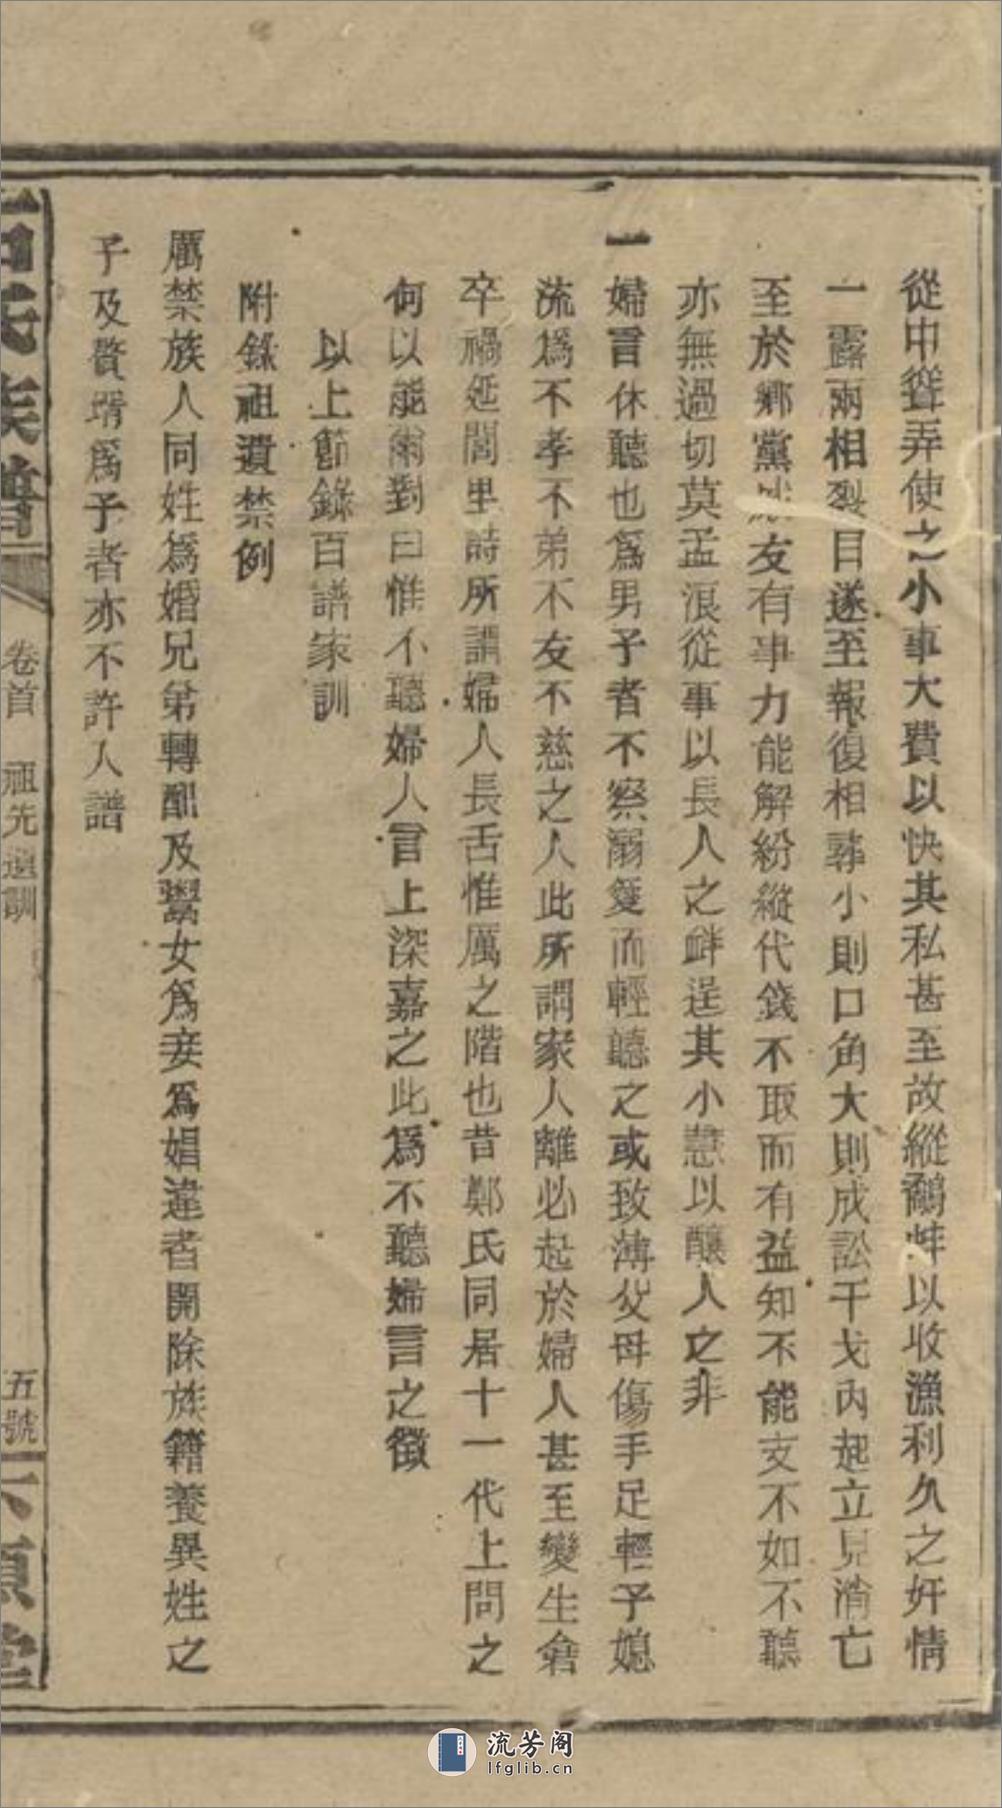 從中聳弄使之小事大費以快其私甚至故縱鷸蚌以收漁利久之奸情
一露兩相裂目遂至報復相尋小則口角大則成訟干戈內起立見消亡
至於鄉黨戚友有事力能解紛縱代錢不取而有益知不能支不如不聽
亦無過切莫孟浪從事以長人之衅逞其小慧以釀人之非
一婦言休聽也爲男子者不察溺愛而輕聽之或致薄父母傷手足輕子媳
流爲不孝不弟不友不慈之人此所謂家人離必起於婦人甚至變生倉
卒禍延閭里詩所謂婦人長舌惟厲之階也昔鄭氏同居十一代上問之
何以能爾對曰惟不聽婦人言上深嘉之此爲不聽婦言之徵
以上節錄百譜家訓
附錄祖遺禁例
厲禁族人同姓爲婚兄弟轉配及鬻女爲妾爲娼違者開除族籍養異姓之
子及贅壻爲子者亦不許入譜
氏族譜 卷首 祖先遺訓 五號
流芳阁
lfglib.cn